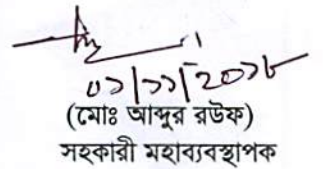 ০১/১১/২০১৮
(মোঃ আব্দুর রউফ)
সহকারী মহাব্যবস্থাপক